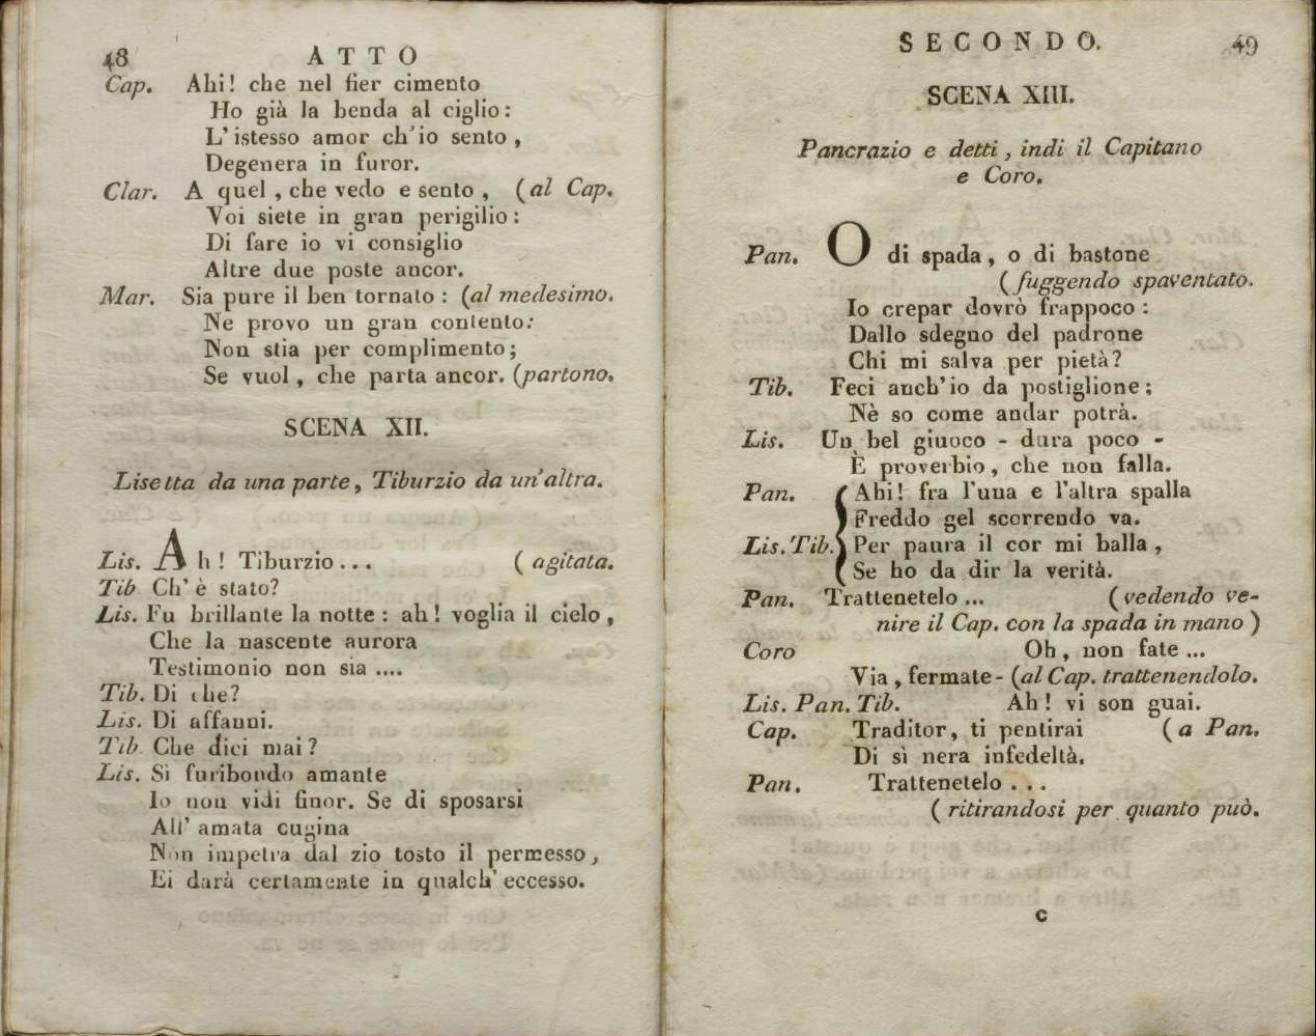 48 ATTO
Cap. Ahi! che nel fier cimento
Ho già la benda al ciglio:
L'istesso amor ch'io sento,
Degenera in furor.
Clar. A quel, che vedo e sento, (al Cap.
Voi siete in gran perigilio:
Di fare io vi consiglio
Altre due poste ancor.
Mar. Sia pure il ben tornato: (al medesimo.
Ne provo un gran contento:
Non stia per complimento;
Se vuol, che parta ancor. (partono.
SCENA XII.
Lisetta da una parte, Tiburzio da un'altra.
Lis. Ah! Tiburzio... (agitata.
Tib Ch'è stato?
Lis. Fu brillante la notte: ah! voglia il cielo,
Che la nascente aurora
Testimonio non sia ....
Tib. Di che?
Lis. Di affanni.
Tib. Che dici mai?
Lis. Sì furibondo amante
Io non vidi finor. Se di sposarsi
All'amata cugina
Non impetra dal zio tosto il permesso,
Ei darà certamente in qualch'eccesso.
SECONDO. 49
SCENA XIII.
Pancrazio e detti, indi il Capitano
e Coro.
Pan. O di spada, o di bastone
(fuggendo spaventato.
Io crepar dovrò frappoco:
Dallo sdegno del padrone
Chi mi salva per pietà?
Tib. Feci anch'io da postiglione;
Nè so come andar potrà.
Lis. Un bel giuoco - dura poco -
È proverbio, che non falla.
Pan. Ahi! fra l'una e l'altra spalla
Freddo gel scorrendo va.
Lis. Tib. Per paura il cor mi balla,
Se ho da dir la verità.
Pan. Trattenetelo... (vedendo ve-
nire il Cap. con la spada in mano)
Coro Oh, non fate...
Via, fermate- (al Cap. trattenendolo.
Lis. Pan. Tib. Ah! vi son guai.
Cap. Traditor, ti pentirai (a Pan.
Di sì nera infedeltà.
Pan. Trattenetelo...
(ritirandosi per quanto può.
c